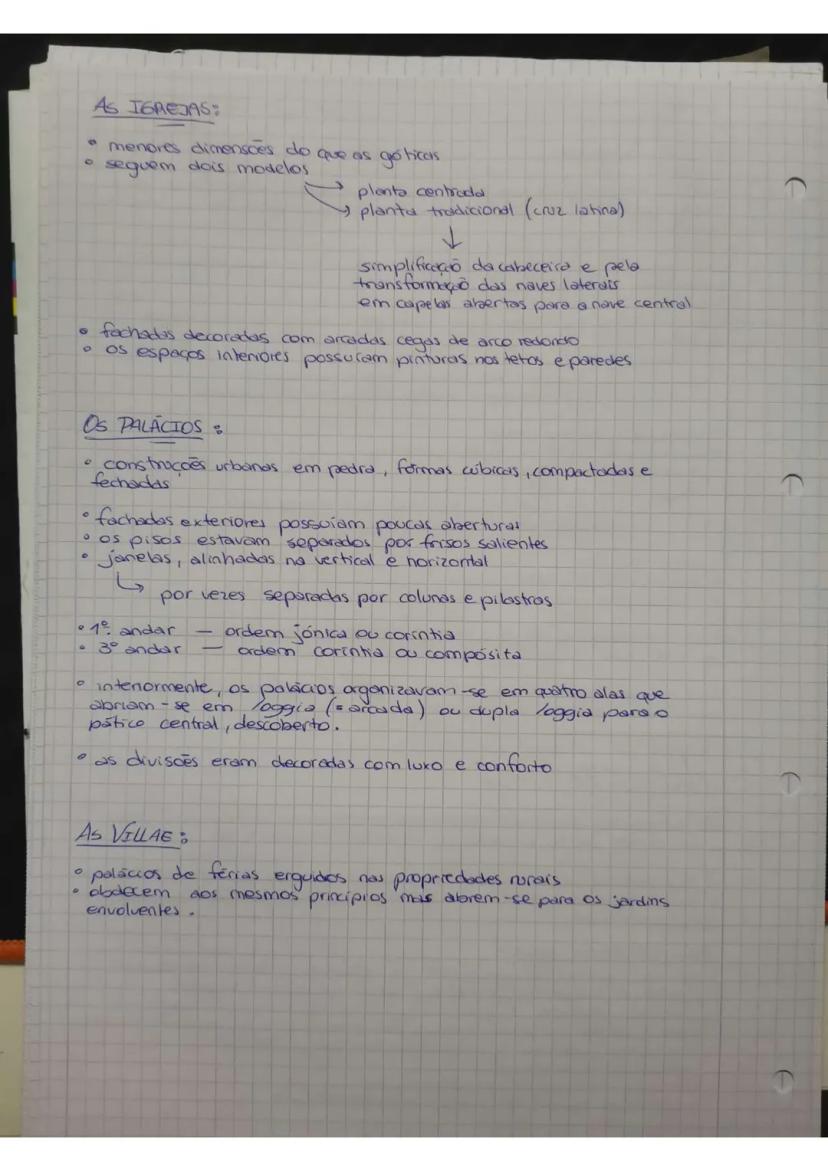 AS IGREJAS:
• menores dimensões do que as góticas
• seguem dois modelos
→ planta centrada
→ planta tradicional (cruz latina)
↓
simplificação da cabeceira e pela
transformação das naves laterais
em capelas abertas para a nave central
• fachadas decoradas com arcadas cegas de arco redondo
• os espaços interiores possuíam pinturas nos tetos e paredes
OS PALÁCIOS:
• construções urbanas em pedra, formas cúbicas, compactadas e
fechadas
• fachadas exteriores possuíam poucas aberturas
• os pisos estavam separados por frisos salientes
• janelas, alinhadas na vertical e horizontal
↳ por vezes separadas por colunas e pilastras
• 1º andar — ordem jónica ou coríntia
• 3º andar — ordem coríntia ou compósita
• interiormente, os palácios organizavam-se em quatro alas que
abriam-se em loggia (= arcada) ou dupla loggia para o
pático central, descoberto.
• as divisões eram decoradas com luxo e conforto
AS VILLAE:
• palácios de férias erguidos nas propriedades rurais
• obdecem aos mesmos princípios mas abrem-se para os jardins
envolventes.